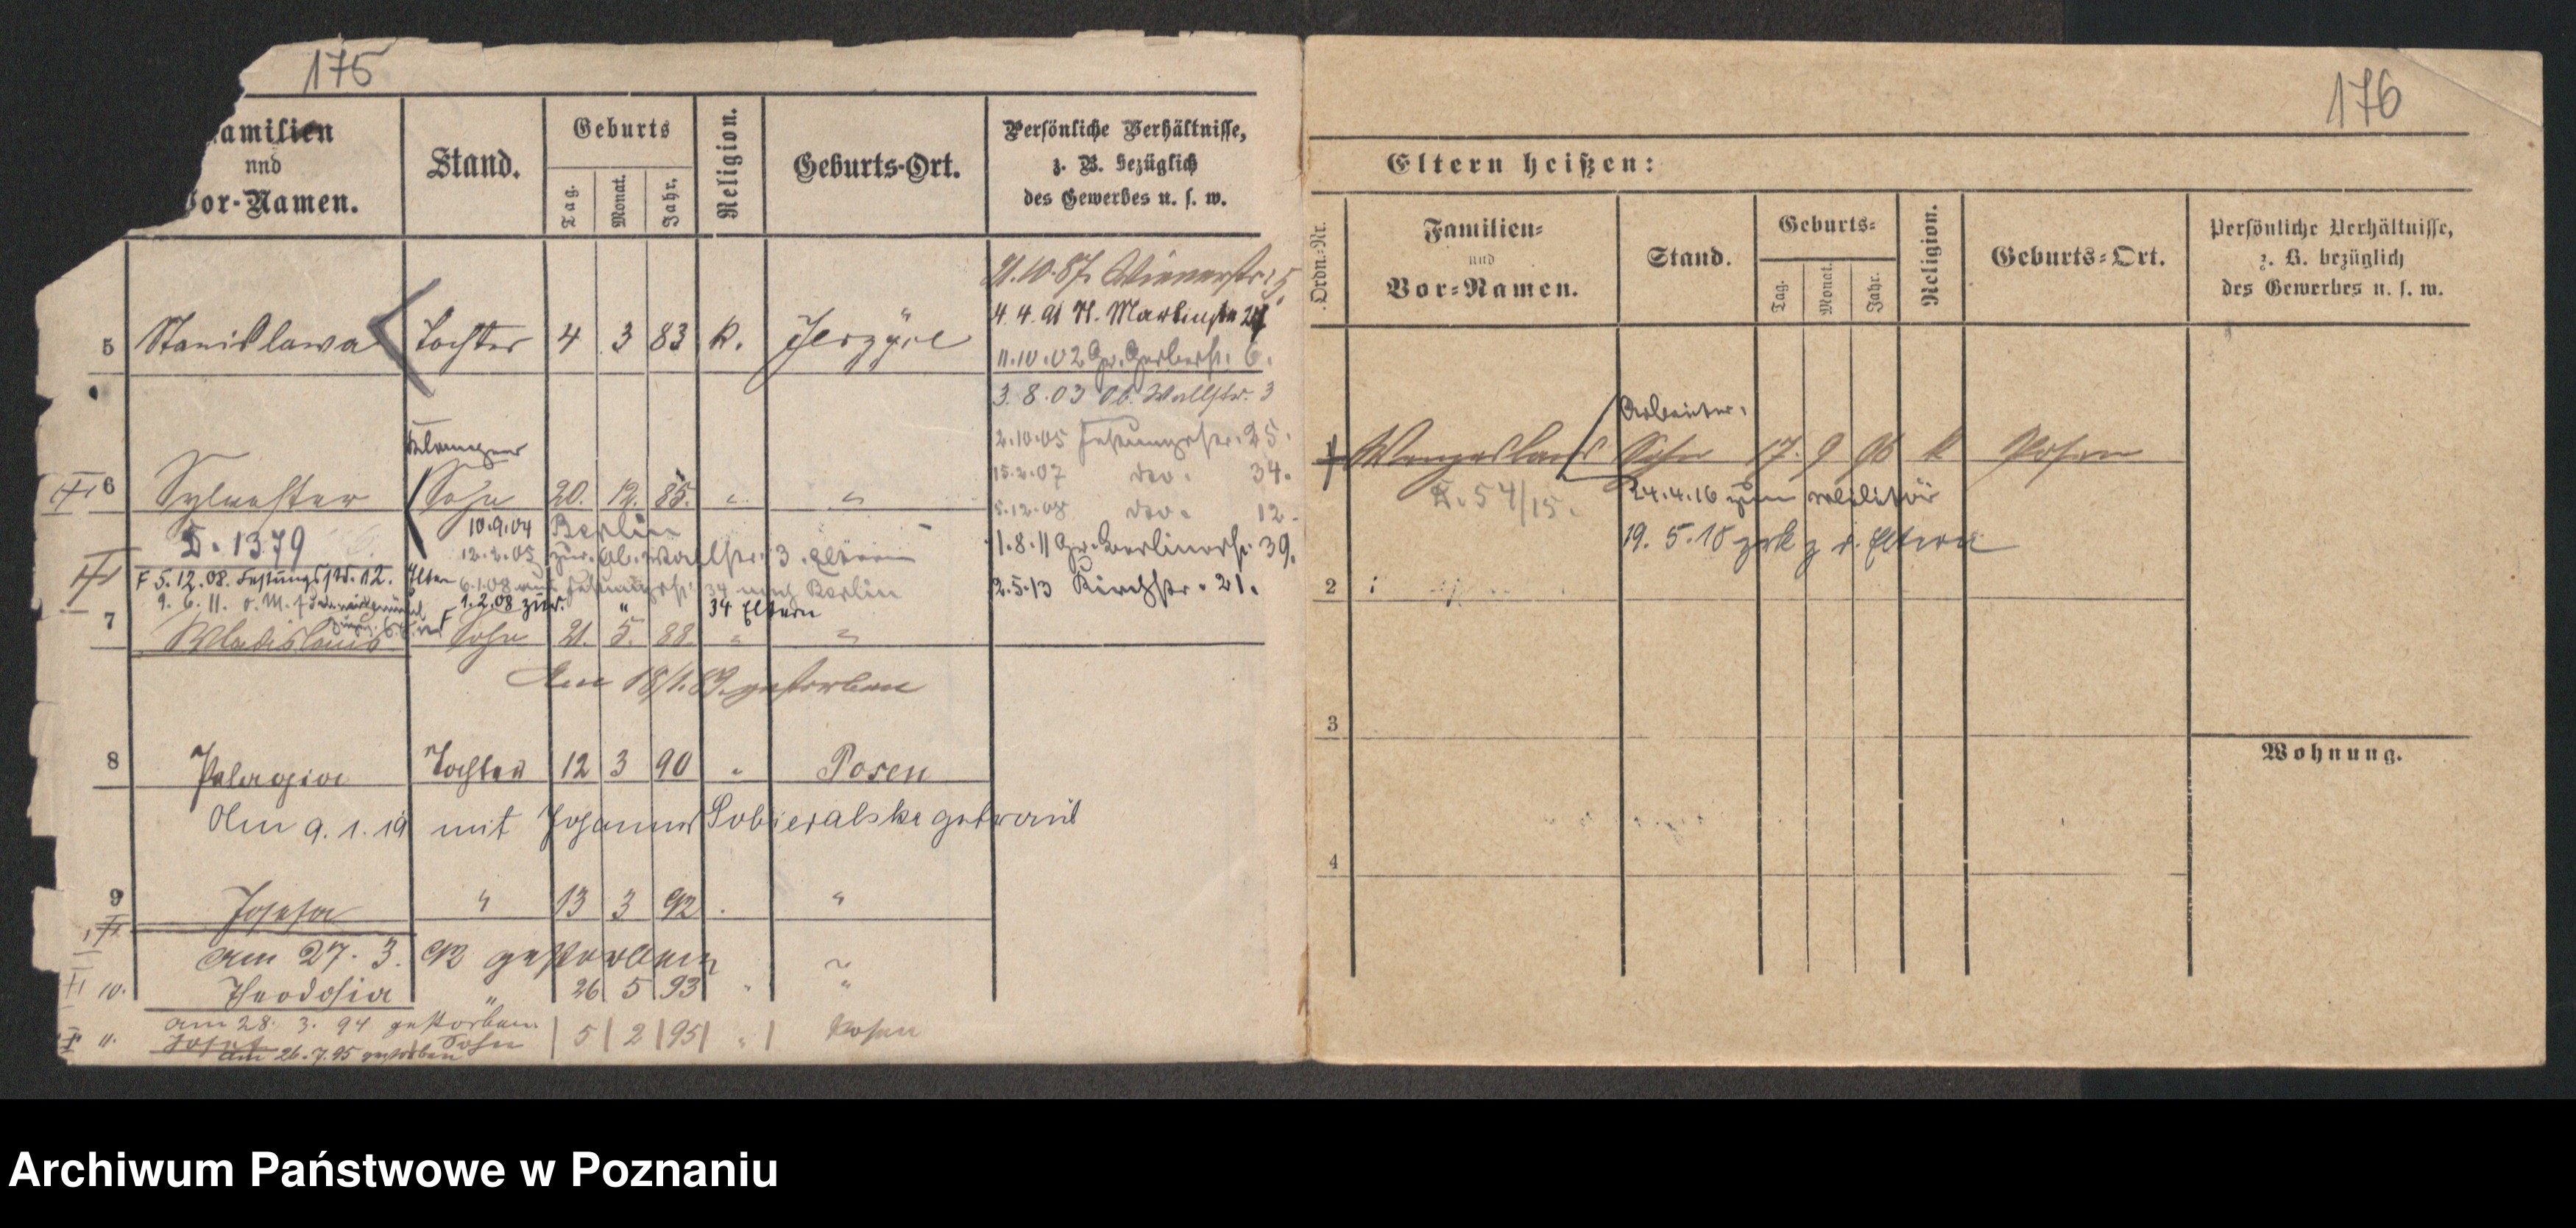 175
amilien
und
Vor-Namen.
Stand.
Geburts
Tag.
Monat.
Jahr.
Religion.
Geburts-Ort.
Persönliche Verhältnisse,
z. B. bezüglich
des Gewerbes u. s. w.
21.10.87. Wienerstr. 5
4.4.91 St. Martinstr. 27
5 Stanislawa Tochter 4 3 83 k.
11.10.02 Gr. Gerberstr. 6.
3.8.03 Ob. Wallstr. 3
2.10.05 Festungsstr. 25.
Klempner
15.2.07 dto. 34.
6 Sylvester Sohn 20. 12. 85. " "
5.12.08 dto. 12.
10.9.04 Berlin
D. 1379
12.2.05 zur. Ob. Wallstr. 3. Eltern
11.8.11 Gr. Berlinerstr. 39.
F 5.12.08. Festungsstr. 12. Eltern
6.1.08 aus Festungsstr. 34 nach Berlin
2.5.13 Kirchstr. 21.
9.6.11. v. M.
1.2.08 zur. " 34 Eltern
7 Wladislaus Sohn 21. 5. 88. " "
Am 18/1.89. gestorben
8 Pelagia Tochter 12 3 90 " Posen
Am 9.1.19 mit Johannes Sobieralski getraut
9 Josefa " 13 3 92 . "
am 27. 3. 92 gestorben
10. Theodosia " 26 5 93 " "
am 28. 3. 94 gestorben
11. Josef Sohn 5 2 95 " Posen
am 26.7.95 gestorben
176
Eltern heißen:
Ordn.-Nr.
Familien-
und
Vor-Namen.
Stand.
Geburts-
Tag.
Monat.
Jahr.
Religion.
Geburts-Ort.
Persönliche Verhältnisse,
z. B. bezüglich
des Gewerbes u. s. w.
Arbeiter.
1 Wenzeslaus Sohn 17. 9 96 k Posen
D. 54/15.
24.4.16 zum Militär
19.5.18 zrk z. d. Eltern
2
3
Wohnung.
4
Archiwum Państwowe w Poznaniu